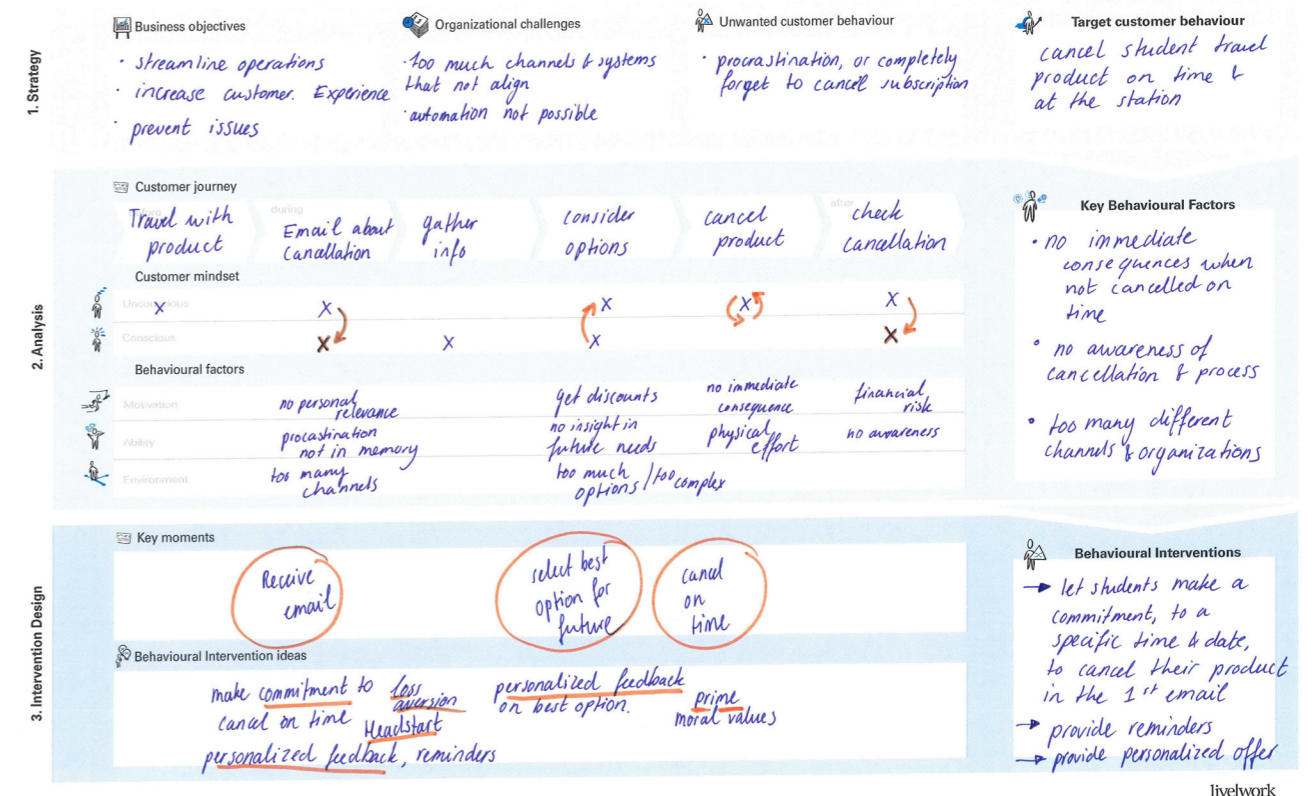 Business objectives
• streamline operations
• increase customer. Experience
• prevent issues
Organizational challenges
• too much channels & systems
that not align
• automation not possible
Unwanted customer behaviour
• procrastination, or completely
forget to cancel subscription
Target customer behaviour
cancel student travel
product on time &
at the station
1. Strategy
Customer journey
Travel with
product
during
Email about
Canallation
gather
info
consider
options
cancel
product
after
check
cancellation
Customer mindset
Unconscious
X
X
X
X
X
Conscious
X
X
X
X
Behavioural factors
Motivation
no personal
relevance
get discounts
no immediate
consequence
financial
risk
Ability
procastination
not in memory
no insight in
future needs
physical
effort
no awareness
Environment
too many
channels
too much
options / too complex
Key Behavioural Factors
• no immediate
consequences when
not cancelled on
time
• no awareness of
cancellation & process
• too many different
channels & organizations
2. Analysis
Key moments
Receive
email
select best
option for
future
cancel
on
time
Behavioural Intervention ideas
make commitment to
cancel on time
loss
aversion
Headstart
personalized feedback, reminders
personalized feedback
on best option.
prime
moral values
Behavioural Interventions
→ let students make a
commitment, to a
specific time & date,
to cancel their product
in the 1st email
→ provide reminders
→ provide personalized offer
3. Intervention Design
livelwork